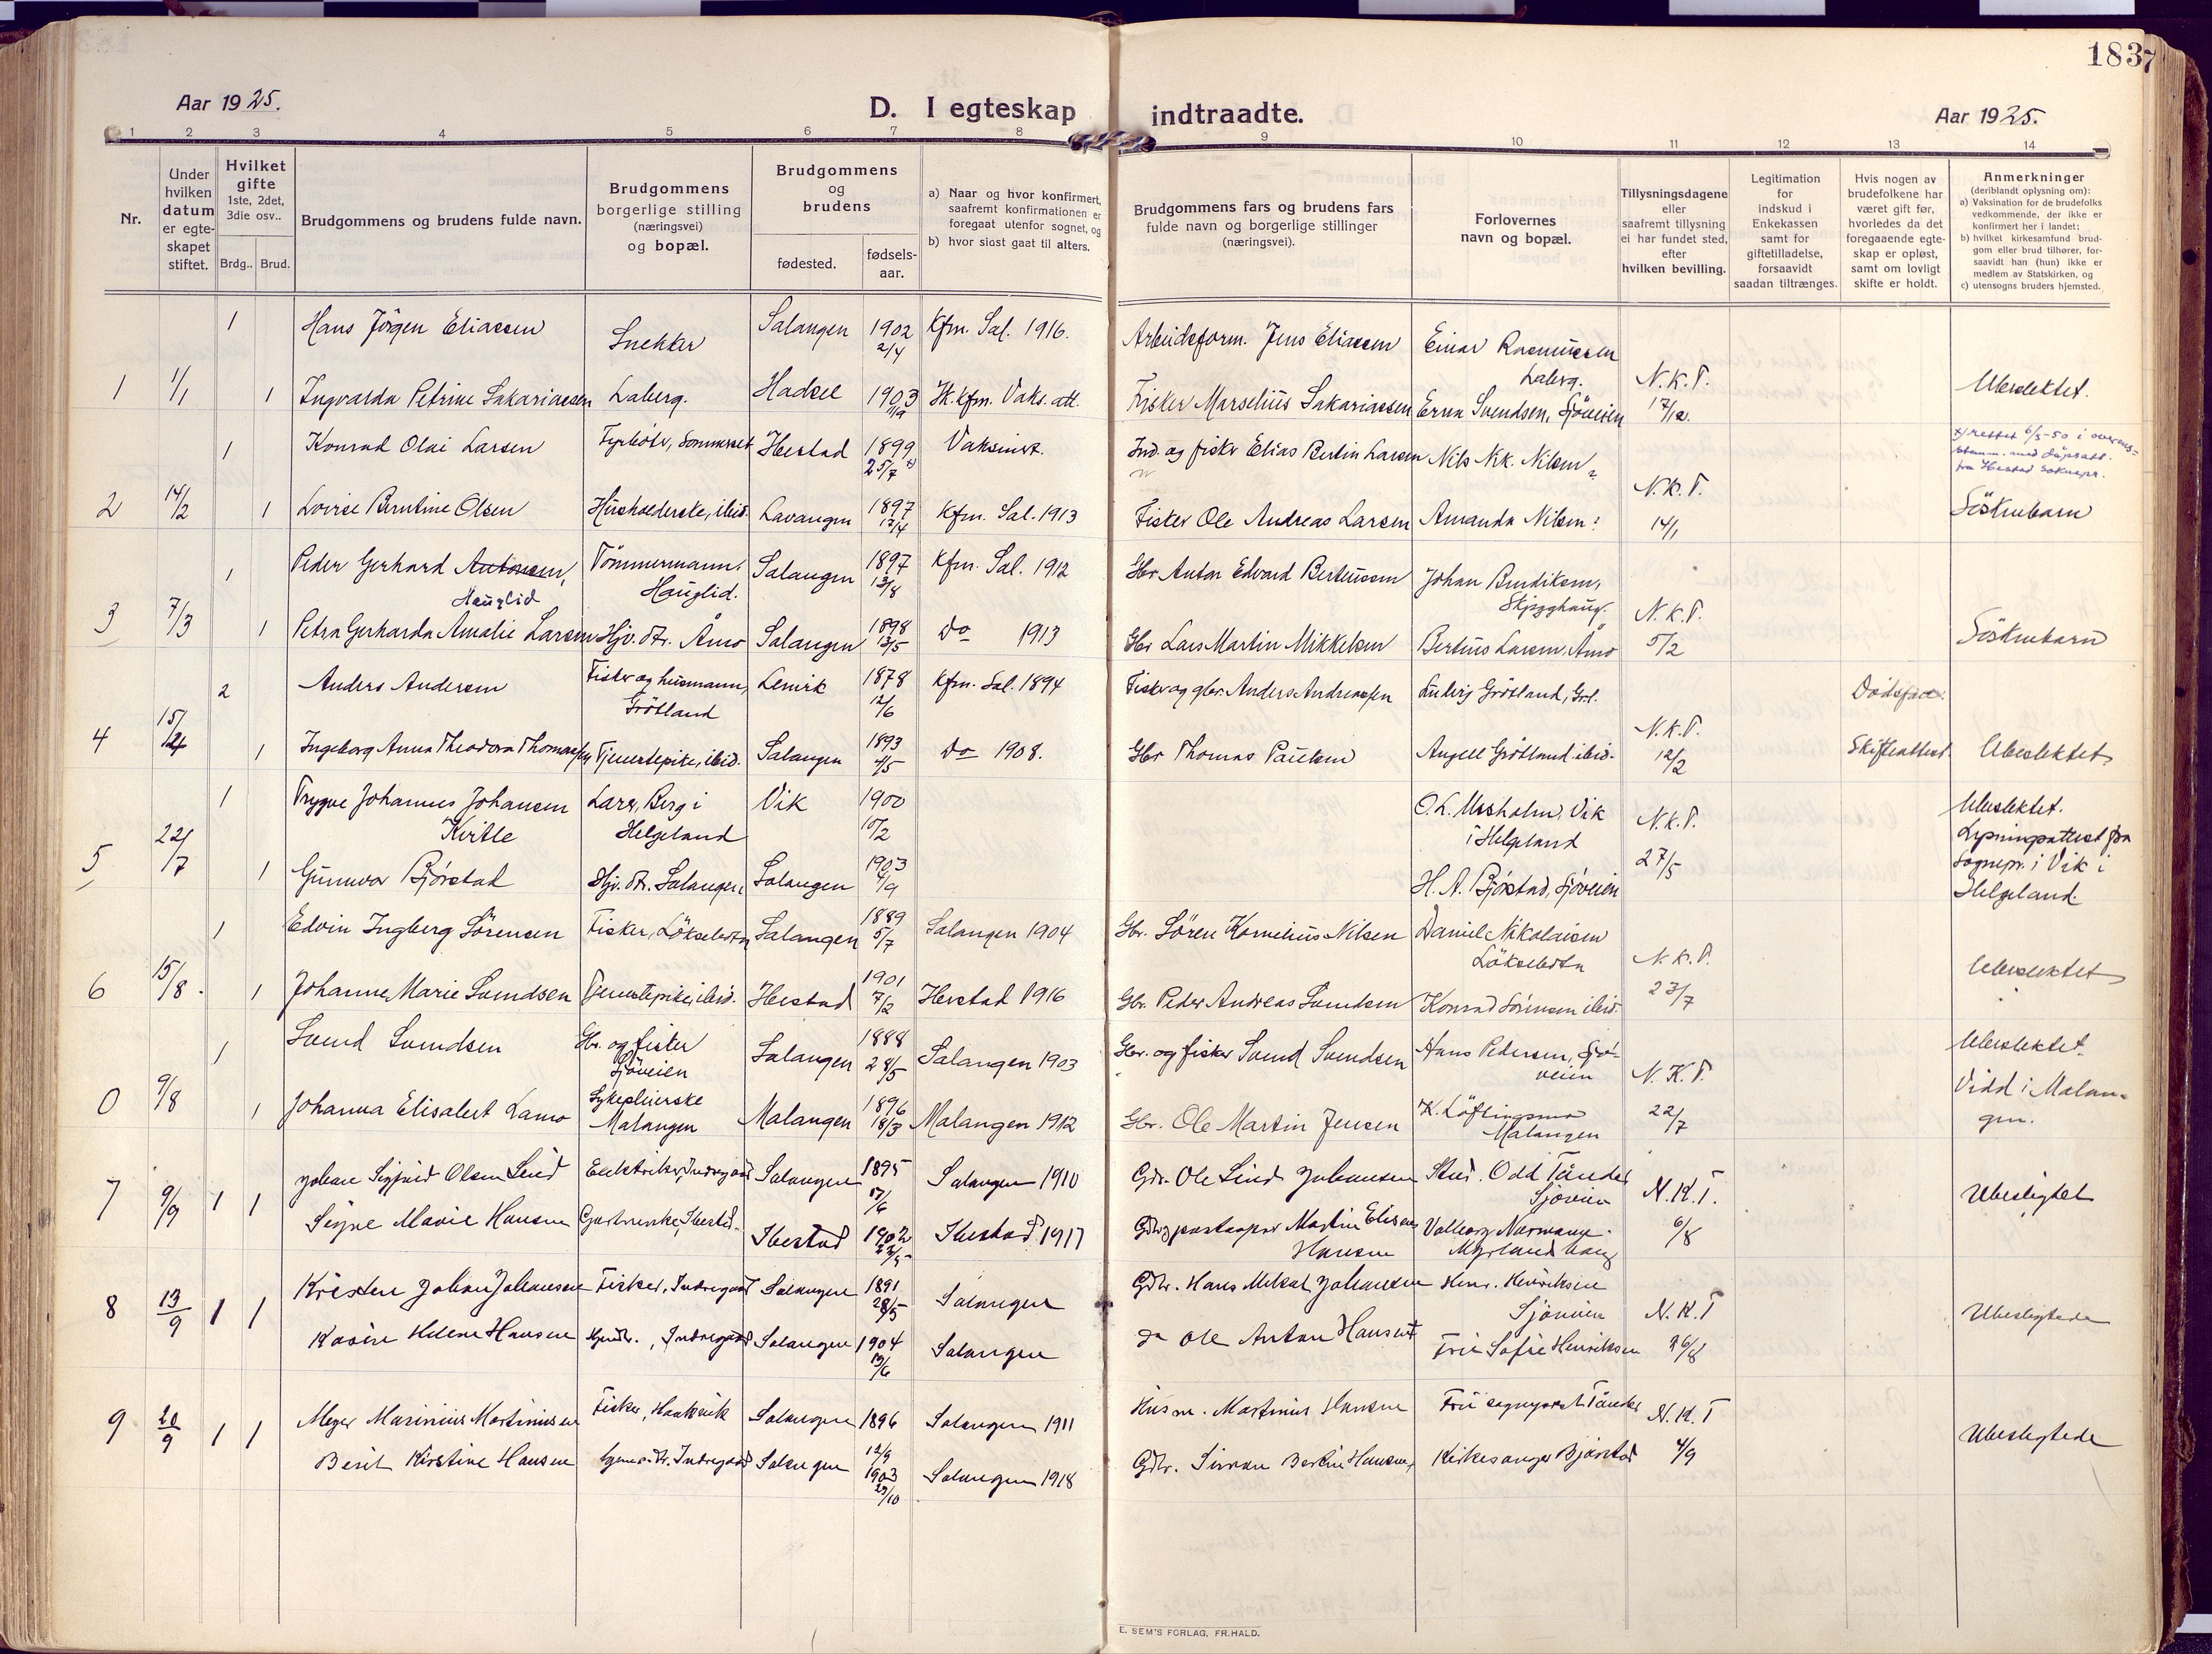 183
Aar 1925.
D. I egteskap indtraadte.
Aar 1925.
1 2 3 4 5 6 7 8 9 10 11 12 13 14
Nr.
Under hvilken datum er egte-skapet stiftet.
Hvilket gifte 1ste, 2det, 3die osv..
Brdg.. Brud.
Brudgommens og brudens fulde navn.
Brudgommens borgerlige stilling (næringsvei) og bopæl.
Brudgommens og brudens
fødested.
fødsels-aar.
a) Naar og hvor konfirmert, saafremt konfirmationen er foregaat utenfor sognet, og
b) hvor sidst gaat til alters.
Brudgommens fars og brudens fars fulde navn og borgerlige stillinger (næringsvei).
Forlovernes navn og bopæl.
Tillysningsdagene eller saafremt tillysning ei har fundet sted, efter hvilken bevilling.
Legitimation for indskud i Enkekassen samt for giftetilladelse, forsaavidt saadan tiltrænges.
Hvis nogen av brudefolkene har været gift før, hvorledes da det foregaaende egte-skap er opløst, samt om lovligt skifte er holdt.
Anmerkninger
(deriblandt oplysning om):
a) Vaksination for de brudefolks vedkommende, der ikke er konfirmert her i landet;
b) hvilket kirkesamfund brud-gom eller brud tilhører, for-saavidt han (hun) ikke er medlem av Statskirken, og
c) utensogns bruders hjemsted.
1 Hans Jörgen Eliassen Snekker Salangen 1902 2/4 Kfm. Sal. 1916. Arbeidsform. Jens Eliassen Einar Rasmussen Laberg. N.K.T.
1 1/1 1 Ingvalda Petrine Sakariassen Laberg. Hadsel 1903 Ik. kfm. Vaks. att. Fisker Marselius Sakariassen Erna Svendsen, Sjöveien 17/12. Ubeslektet.
1 Konrad Olai Larsen Fyrböter, Sommerset Ibestad 1899 25/7 x) Vaksinert. Ind. og fisker Elias Bertin Larsen Nils Nik. Nilsen N.K.T. x) rettet 6/3-50 i overens-
stemm. med dåpsatt.
fra Ibestad soknepr.
2 14/2 1 Lovise Berntine Olsen Husholderske, ibid. Lavangen 1897 17/4 Kfm. Sal. 1913 Fisker Ole Andreas Larsen Amanda Nilsen 14/1 Söskenbarn
1 Peder Gerhard Antonsen, Hauglid Tömmermann, Hauglid. Salangen 1897 13/8 Kfm. Sal. 1912 Gbr Anton Edvard Berteussen Johan Bendiksen, N.K.T.
3 7/3 1 Petra Gerharda Amalie Larsen Hjv. dtr. Åmo Salangen 1898 13/5 Do 1913 Gbr Lars Martin Mikkelsen Berteus Larsen, Åmo 5/2 Söskenbarn
2 Anders Andersen Fisker og husmann, Grötland Lenvik 1878 12/6 Kfm. Sal. 1894 Fisker og gbr. Anders Andreassen Ludvig Grötland, Grl. N.K.T.
4 15/2 1 Ingeborg Anna Theodora Thomassen Tjenestepike, ibid. Salangen 1893 4/5 Do 1908. Gbr Thomas Paulsen Angell Grötland ibid. 12/2 Skifteattest. Ubeslektet
1 Trygve Johannes Johansen Kirtle Lærer, Berg i Helgeland Vik 1900 10/2 O. L. Mosholm, Vik i Helgeland N.K.T. Ubeslektet.
Lysningsattest fra
Sognepr. i Vik i
Helgeland.
5 22/7 1 Gunnvor Björstad Hjv. dtr. Salangen Salangen 1903 6/9 H. A. Björstad, Sjöveien 27/5
1 Edvin Ingberg Sörensen Fisker, Löksebotn Salangen 1889 5/7 Salangen 1904 Gbr. Sören Kornelius Nilsen Daniel Nikolaisen Löksebotn N.K.T.
6 15/8. 1 Johanne Marie Svendsen Tjenestepike, ibid. Ibestad 1901 7/2 Ibestad 1916 Gbr. Peder Andreas Svendsen Konrad Sörensen ibid. 23/7 Ubeslektet
1 Svend Svendsen Gbr. og fisker Sjöveien Salangen 1888 28/5 Salangen 1903 Gbr. og fisker Svend Svendsen Hans Pedersen, Sjö-veien N.K.T. Ubeslektet.
0 9/8 1 Johanna Elisabert Lamo Sykepleierske Malangen Malangen 1896 18/3 Malangen 1912 Gbr. Ole Martin Jensen K. Löftingsmo Malangen 22/7 Vidd i Malan-
gen.
7 9/9 1 1 Johan Sigfrid Olsen Lund Elektriker, Indregård Salangen 1895 17/6 Salangen 1910 Gdr. Ole Lind Johansen Stud. Odd Tander Sjöveien N.K.T. Ubeslegtet
Signe Marie Hansen Gartnerske, Ibestad. Ibestad 1902 Ibestad 1917 Gdr. og postaapner Martin Elisæus Hansen Valborg Normann Myrlandshaug 6/8
8 13/9 1 1 Kristen Johan Johansen Fisker, Indregård Salangen 1891 28/5 Salangen Gdbr. Hans Mikal Johansen Henr. Henriksen Sjöveien N.K.T Ubeslegtede
Kasine Helene Hansen Hjvdtr., Indregård Salangen 1904 19/6 Salangen do Ole Anton Hansen Fru Sofie Henriksen 26/8
9 20/9 1 1 Meyer Marinius Martinussen Fisker, Haakvik Salangen 1896 12/9 Salangen 1911 Husm. Martinus Hansen Fru sogneprest Tander N.K.T Ubeslegtede
Berit Kirstine Hansen Indregård Salangen 1903 29/10 Salangen 1918 Gdbr. Simon Bertin Hansen, Kirkesanger Björstad 4/9
E. SEM'S FORLAG, FR.HALD.